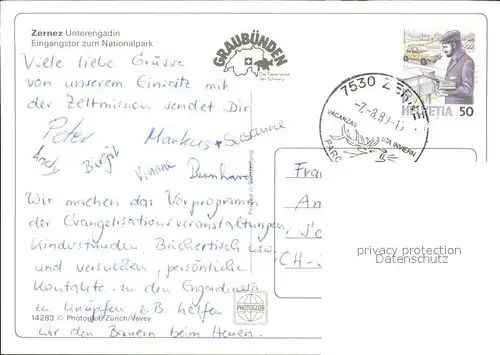 Zernez Unterengadin
Eingangstor zum Nationalpark
GRAUBÜNDEN
Die Ferienecke
der Schweiz
HELVETIA 50
7530 ZERNEZ
-7.-8.89-1
VACANZAS
STA INVIERN
PARC
Viele liebe Grüsse
von unserem Einsatz mit
der Zeltmission sendet Dir
Peter
Markus + Susanne
Birgit
Bernhard
Wir machen das Vorprogramm
der Evangelisationsveranstaltungen,
Kinderstunden, Büchertisch usw.
und versuchen, persönliche
Kontakte zu den Engadinern
zu knüpfen z.B. helfen
wir den Bauern beim Heuen.
Fra
An
CH-
privacy protection
Datenschutz
PHOTOGLOB
14283 © Photoglob Zürich/Vevey